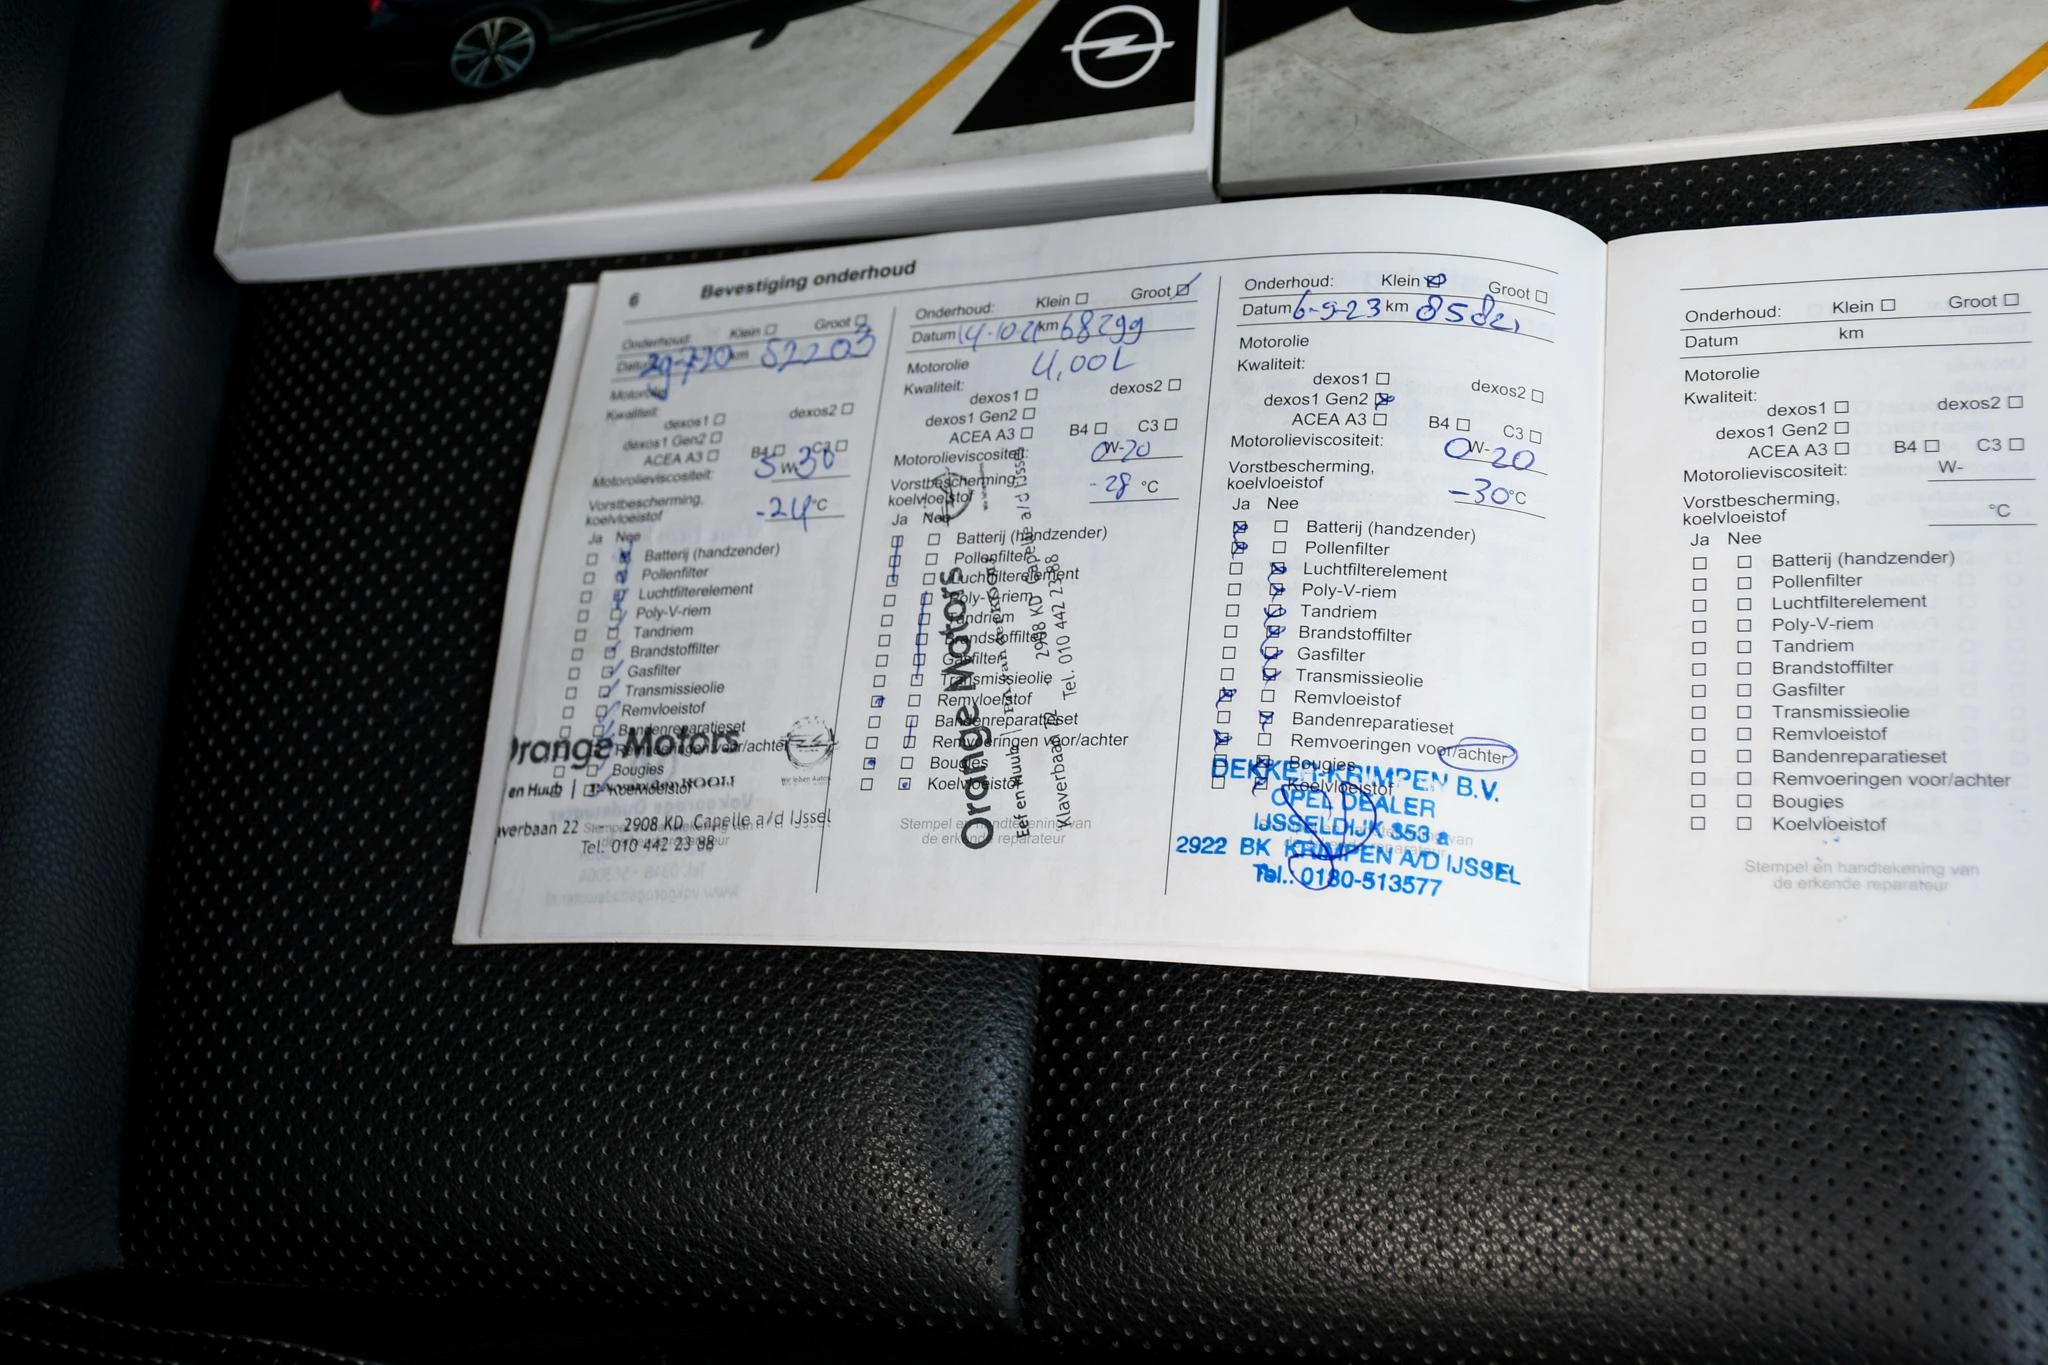 6 Bevestiging onderhoud
Onderhoud: Klein Groot
Datum 29-7-20 km 52203
Motorolie
Kwaliteit:
dexos1 dexos2
dexos1 Gen2
ACEA A3 B4 C3
Motorolieviscositeit: 5 W-30
Vorstbescherming,
koelvloeistof -24 °C
Ja Nee
Batterij (handzender)
Pollenfilter
Luchtfilterelement
Poly-V-riem
Tandriem
Brandstoffilter
Gasfilter
Transmissieolie
Remvloeistof
Bandenreparatieset
Remvoeringen voor/achter
Bougies
Koelvloeistof
Orange Motors
en Huub
Wir leben Autos
averbaan 22 2908 KD Capelle a/d IJssel
Tel. 010 442 23 88
Onderhoud: Klein Groot
Datum 14-10-21 km 68299
Motorolie 4,00L
Kwaliteit:
dexos1 dexos2
dexos1 Gen2
ACEA A3 B4 C3
Motorolieviscositeit: 0W-20
Vorstbescherming,
koelvloeistof -28 °C
Ja Nee
Batterij (handzender)
Pollenfilter
Luchtfilterelement
Poly-V-riem
Tandriem
Brandstoffilter
Gasfilter
Transmissieolie
Remvloeistof
Bandenreparatieset
Remvoeringen voor/achter
Bougies
Koelvloeistof
Stempel en handtekening van
de erkende reparateur
Orange Motors
Eef en Huub
Klaverbaan 22 2908 KD Capelle a/d IJssel
Tel. 010 442 23 88
Onderhoud: Klein Groot
Datum 6-9-23 km
Motorolie
Kwaliteit:
dexos1 dexos2
dexos1 Gen2
ACEA A3 B4 C3
Motorolieviscositeit: 0W-20
Vorstbescherming,
koelvloeistof -30°C
Ja Nee
Batterij (handzender)
Pollenfilter
Luchtfilterelement
Poly-V-riem
Tandriem
Brandstoffilter
Gasfilter
Transmissieolie
Remvloeistof
Bandenreparatieset
Remvoeringen voor/achter
Bougies
Koelvloeistof
DEKKER-KRIMPEN B.V.
OPEL DEALER
IJSSELDIJK 353 a
2922 BK KRIMPEN A/D IJSSEL
Tel.: 0180-513577
Onderhoud: Klein Groot
Datum km
Motorolie
Kwaliteit:
dexos1 dexos2
dexos1 Gen2
ACEA A3 B4 C3
Motorolieviscositeit: W-
Vorstbescherming,
koelvloeistof °C
Ja Nee
Batterij (handzender)
Pollenfilter
Luchtfilterelement
Poly-V-riem
Tandriem
Brandstoffilter
Gasfilter
Transmissieolie
Remvloeistof
Bandenreparatieset
Remvoeringen voor/achter
Bougies
Koelvloeistof
Stempel en handtekening van
de erkende reparateur